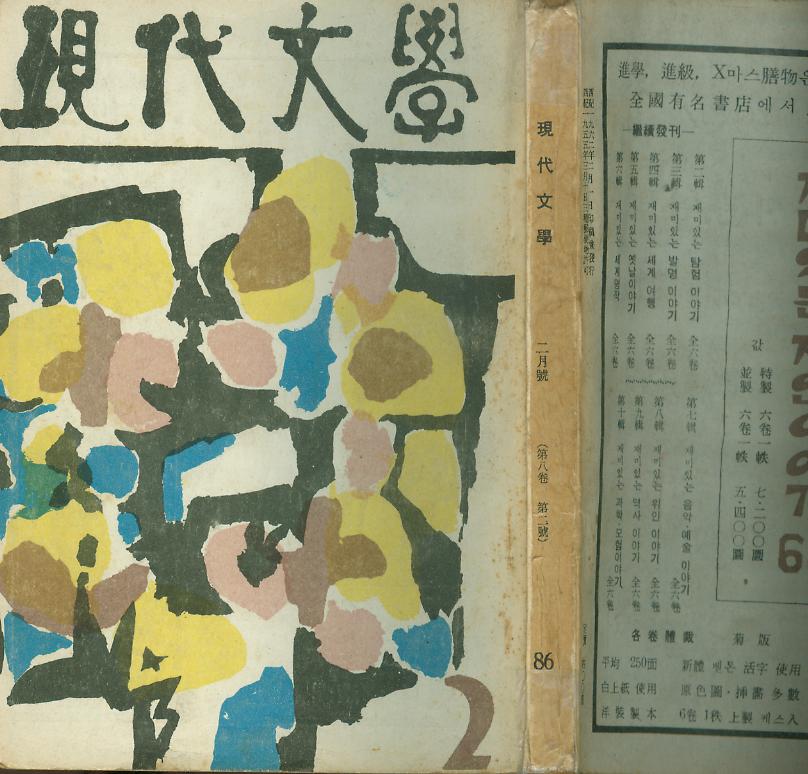 現代文學
2
現代文學
二月號
(第八卷 第二號)
86
進學, 進級, X마스膳物은
全國有名書店에서
—繼續發刊—
第二輯 재미있는 탐험 이야기 全六卷
第三輯 재미있는 발명 이야기 全六卷
第四輯 재미있는 세계 여행 全六卷
第五輯 재미있는 옛날이야기 全六卷
第六輯 재미있는 세계명작 全六卷
第七輯 재미있는 음악·예술 이야기
第八輯 재미있는 위인 이야기 全六卷
第九輯 재미있는 역사 이야기 全六卷
第十輯 재미있는 과학·모험이야기 全六卷
값
特製 六卷一帙 七·二〇〇圜
並製 六卷一帙 五·四〇〇圜
各卷體裁
菊版
平均 250面 新體 벤톤 活字 使用
白上紙 使用 原色圖·挿畵多數
洋裝製本 6卷 1秩 上製 케스入